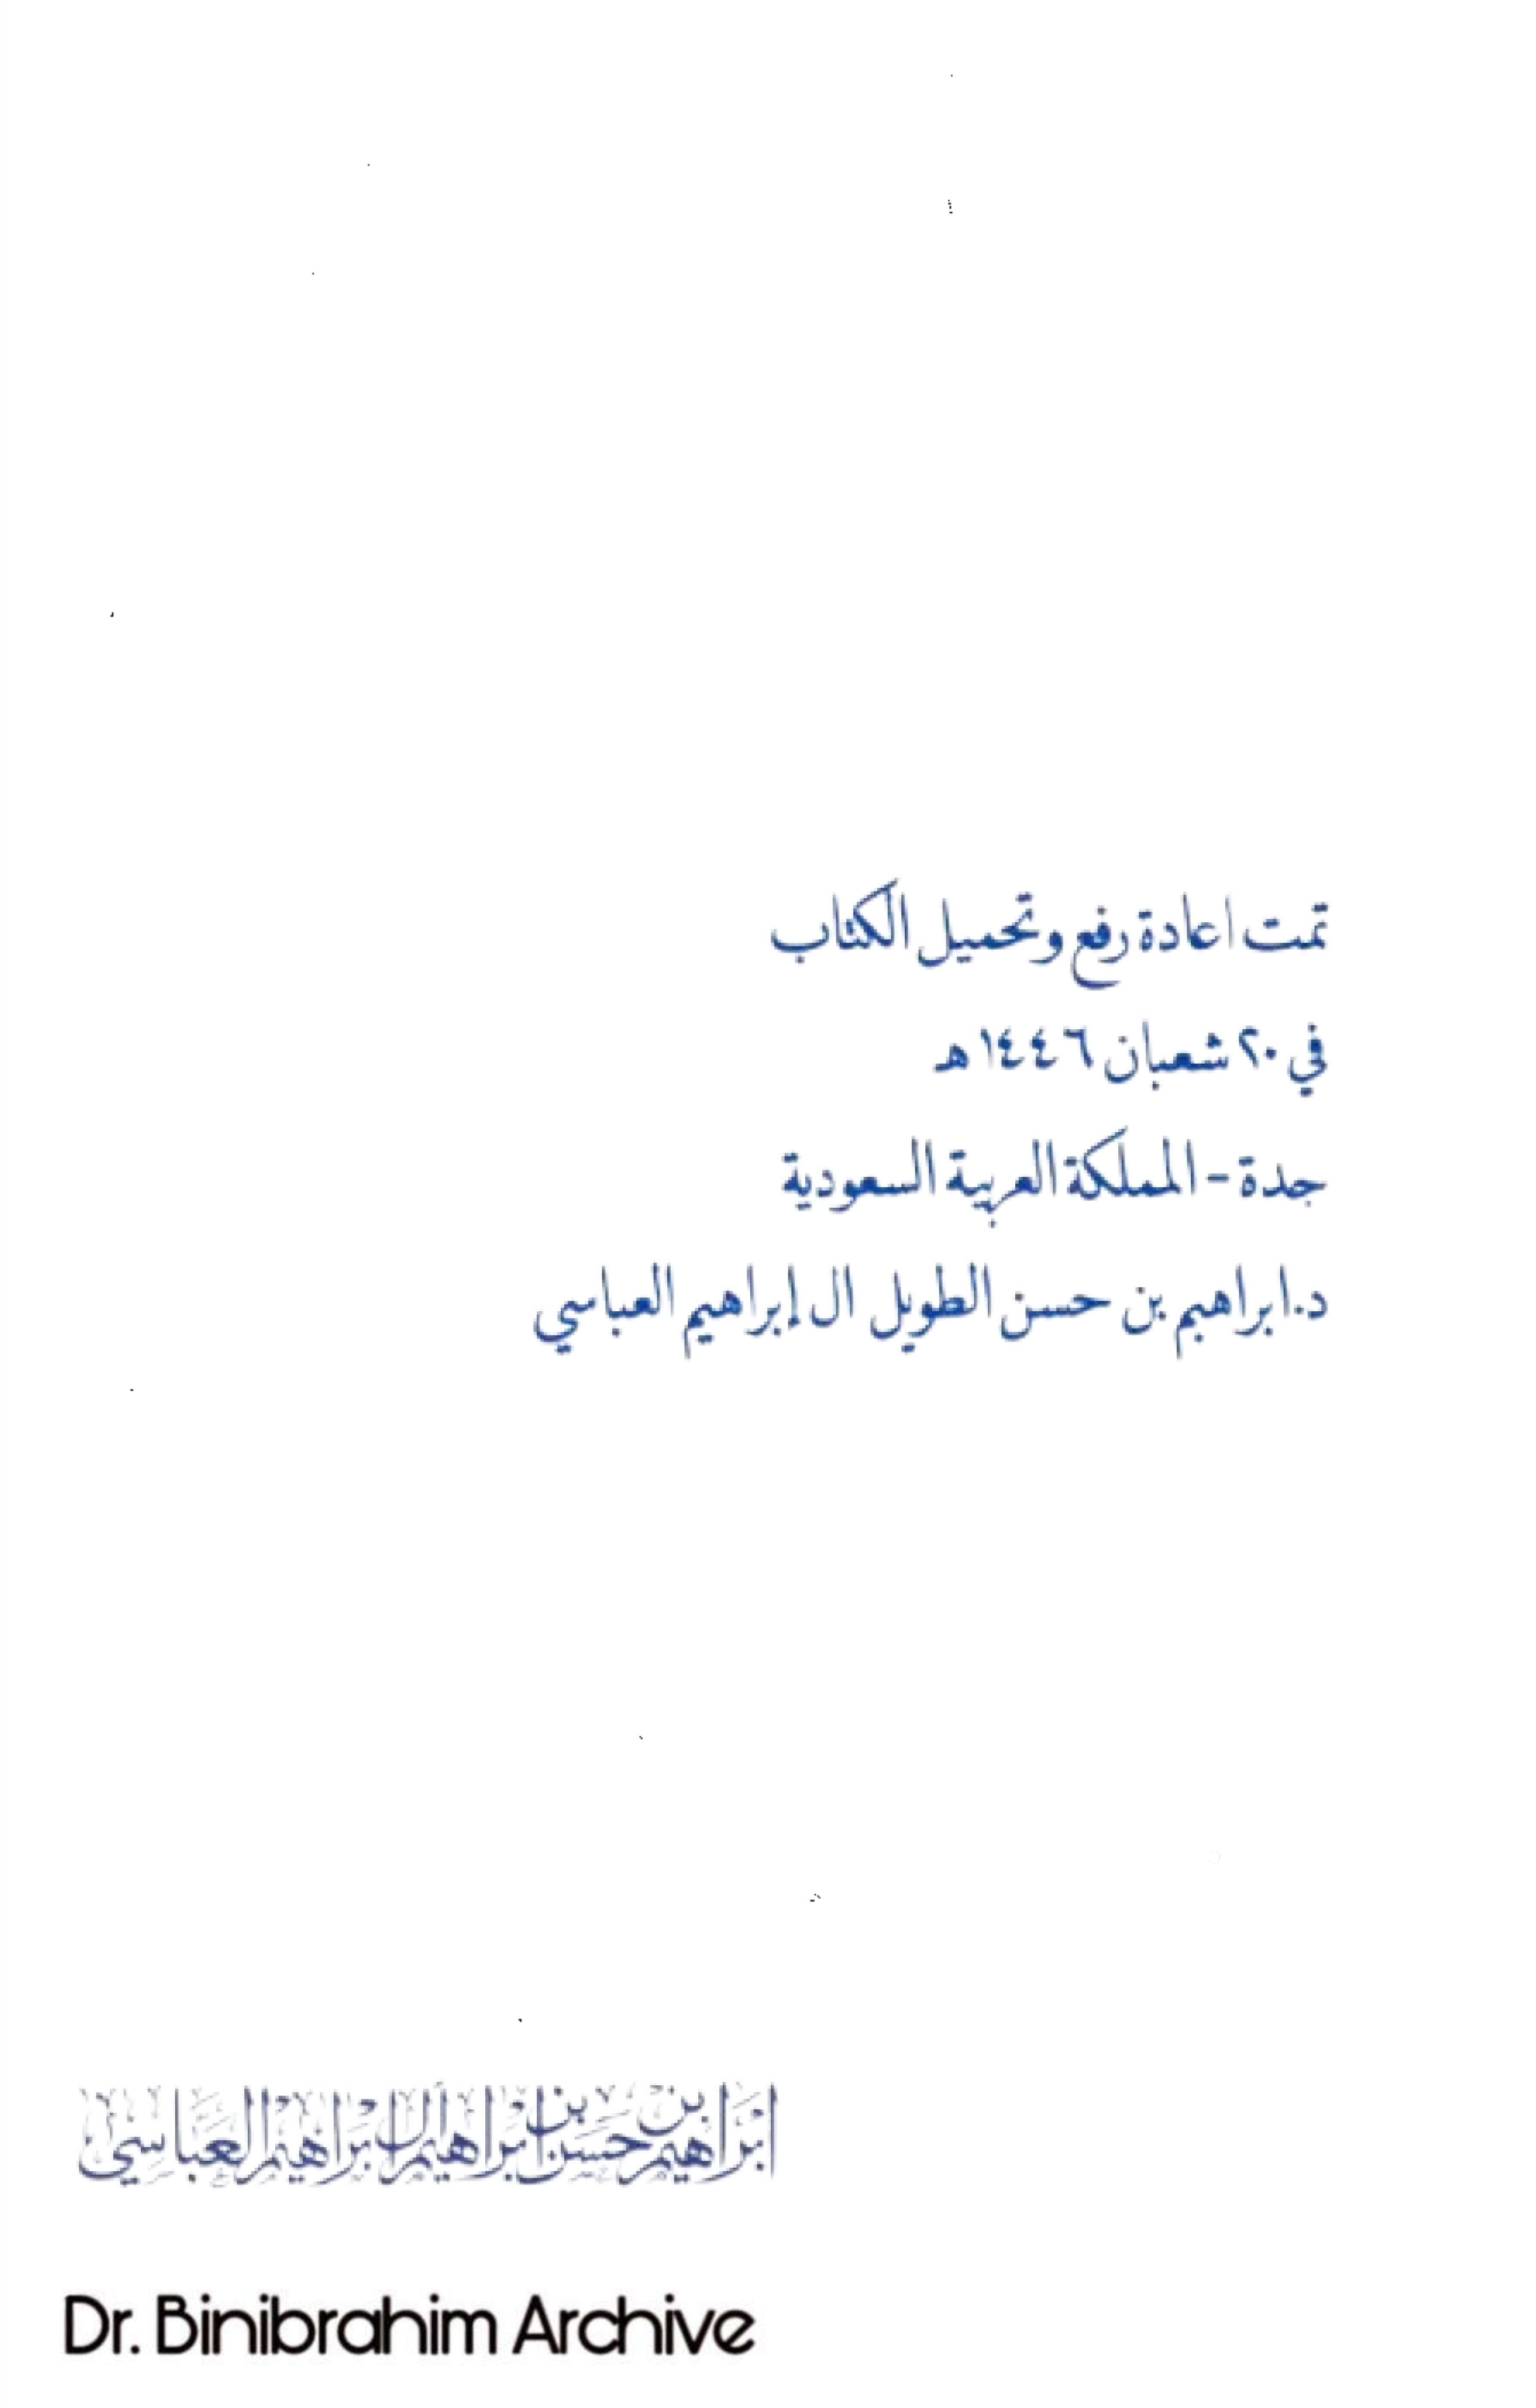 تمت اعادة رفع وتحميل الكتاب
في ٢٠ شعبان ١٤٤٦ هـ
جدة - المملكة العربية السعودية
د. ابراهيم بن حسن الطويل ال إبراهيم العباسي
ابراهيم بن حسن بن ابراهيم ال ابراهيم العباسي
Dr. Binibrahim Archive